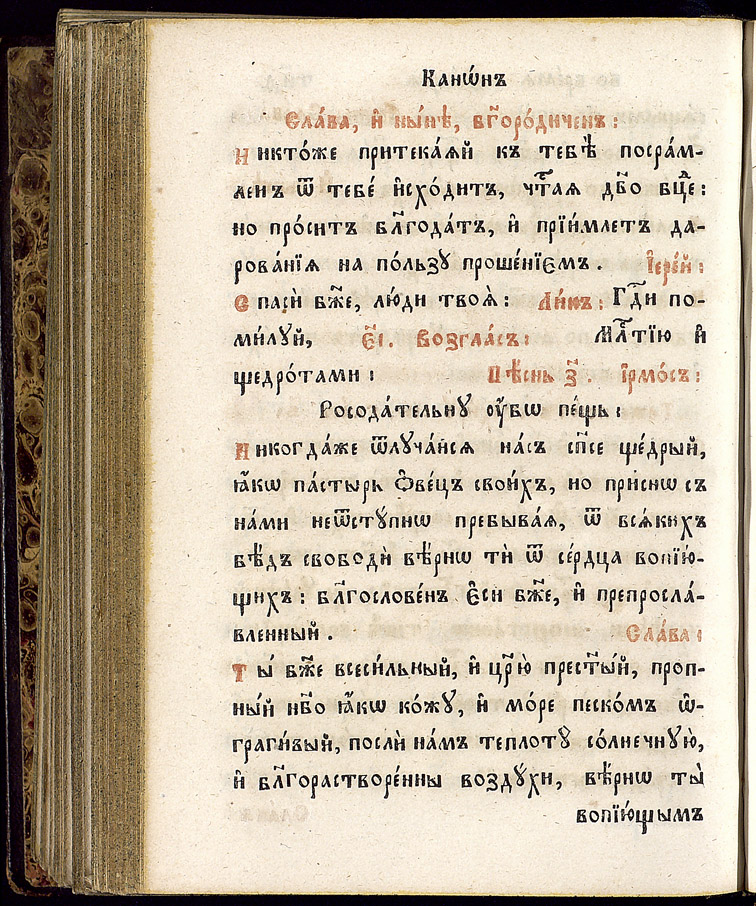 Канѡ́нъ
Сла́ва, и҆ ны́нѣ, бг҃оро́диченъ:
Никто́же притека́ѧй къ тебѣ̀ посра́м-
ленъ ѿ тебє́ и҆схо́дитъ, чⷭ҇таѧ дв҃о бцⷣе:
но про́ситъ бл҃года́тъ, и҆ прїи́млетъ да-
рова́нїѧ на по́льзꙋ прошє́нїємъ. І҆ере́й:
Спасѝ бж҃е, лю́ди твоѧ̑: Ли́къ: Гдⷭ҇и по-
ми́лꙋй, є҃і. Возгла́съ: Млⷭ҇тїю и҆
щедро́тами: Пѣ́снь з҃. І҆рмо́съ:
Росода́тельнꙋ ᲂу҆́бѡ пе́щь:
Никогда́же ѿлꙋча́йсѧ на́съ сп҃се ще́дрый,
ꙗ҆́кѡ па́стырь ѻ҆ве́цъ свои́хъ, но при́снѡ съ
на́ми неѿстꙋ́пнѡ пребыва́ѧ, ѿ всѧ́кихъ
бѣ́дъ свободѝ вѣ́рнѡ тѝ ѿ се́рдца вопїю́-
щихъ: бл҃гослове́нъ є҆сѝ бж҃е, и҆ препросла́-
вленный. Сла́ва:
Ты̀ бж҃е всеси́льный, и҆ цр҃ю̀ прест҃ы́й, проп-
ны́й нб҃о ꙗ҆́кѡ ко́жꙋ, и҆ мо́ре песко́мъ ѡ҆-
граги́вый, послѝ на́мъ теплотꙋ̀ со́лнечнꙋю,
и҆ бл҃горастворе́нны воздꙋ́хи, вѣ́рнѡ ты̀
вопїю́щымъ